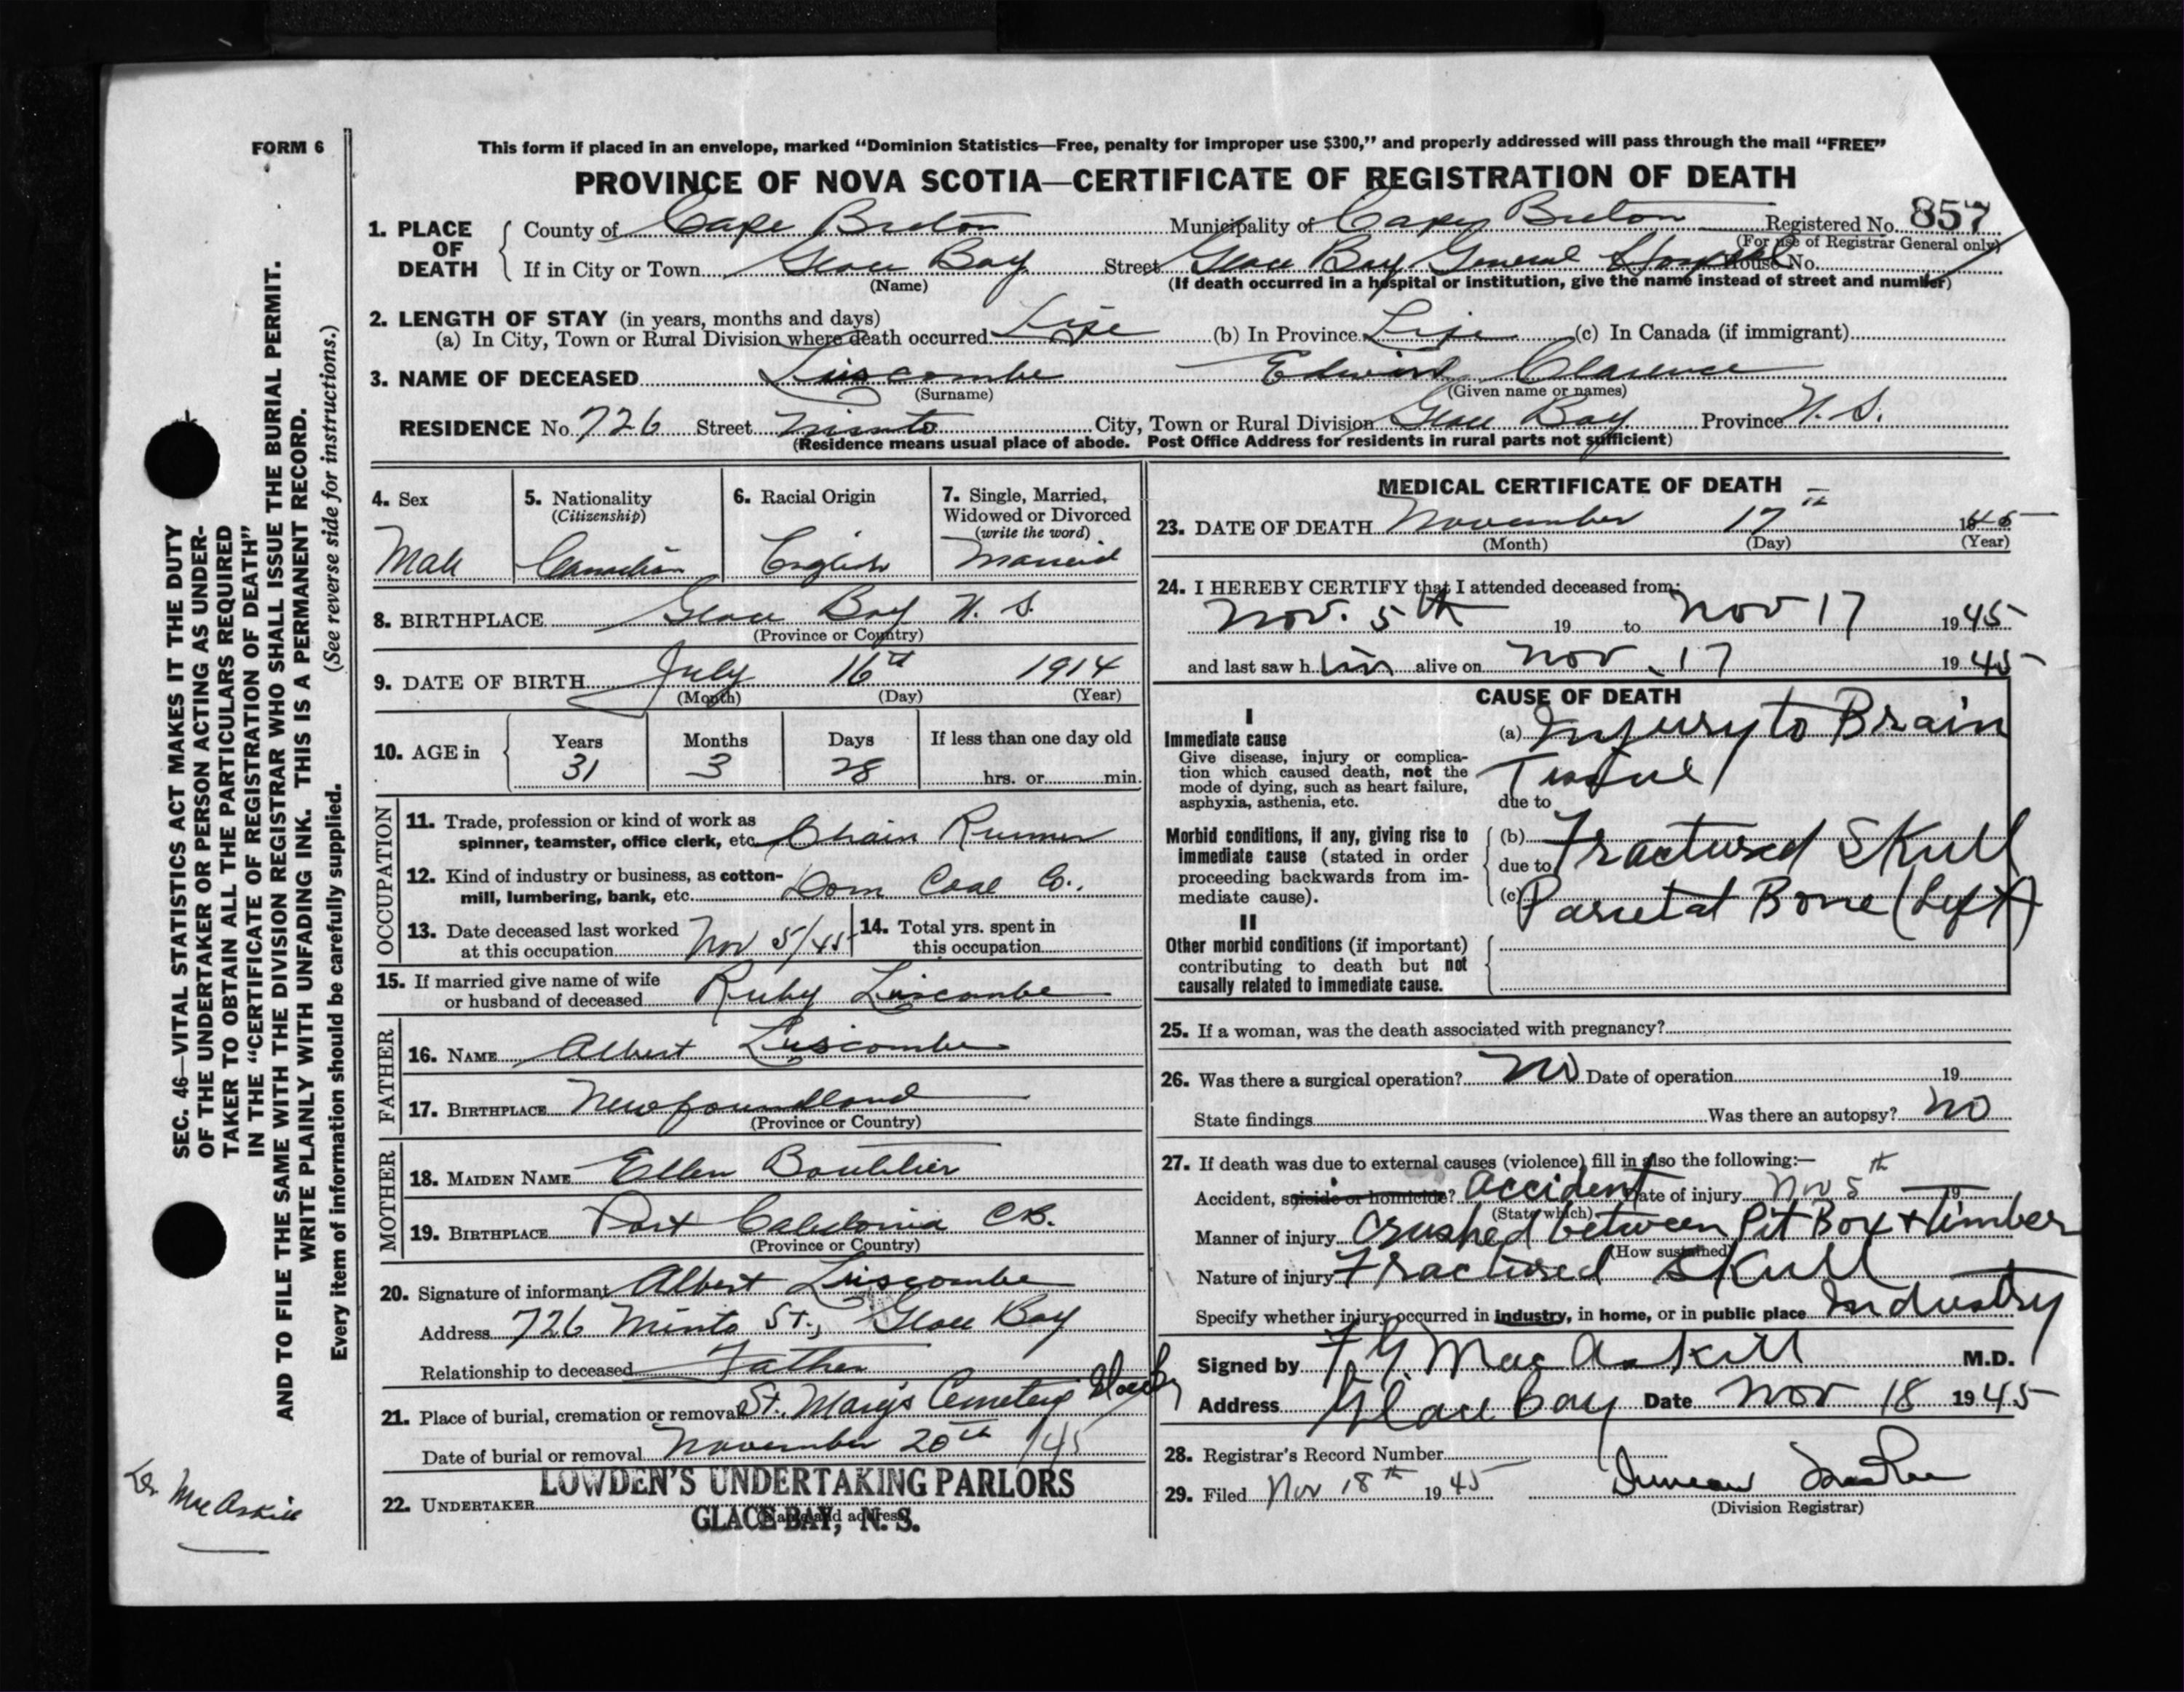 FORM 6
This form if placed in an envelope, marked “Dominion Statistics—Free, penalty for improper use $300,” and properly addressed will pass through the mail “FREE”
PROVINCE OF NOVA SCOTIA—CERTIFICATE OF REGISTRATION OF DEATH
1. PLACE OF DEATH
County of Cape Breton Municipality of Cape Breton Registered No. 857
(For use of Registrar General only)
If in City or Town Glace Bay Street Glace Bay General Hospital House No.
(Name) (If death occurred in a hospital or institution, give the name instead of street and number)
2. LENGTH OF STAY (in years, months and days)
(a) In City, Town or Rural Division where death occurred Life (b) In Province Life (c) In Canada (if immigrant)
3. NAME OF DECEASED Luscombe Edward Clarence
(Surname) (Given name or names)
RESIDENCE No. 726 Street Minto City, Town or Rural Division Glace Bay Province N. S.
(Residence means usual place of abode. Post Office Address for residents in rural parts not sufficient)
4. Sex Male
5. Nationality (Citizenship) Canadian
6. Racial Origin English
7. Single, Married, Widowed or Divorced (write the word) Married
8. BIRTHPLACE Glace Bay N. S.
(Province or Country)
9. DATE OF BIRTH July 16th 1914
(Month) (Day) (Year)
10. AGE in Years 31 Months 3 Days 28 If less than one day old hrs. or min.
OCCUPATION
11. Trade, profession or kind of work as
spinner, teamster, office clerk, etc. Chain Runner
12. Kind of industry or business, as cotton-
mill, lumbering, bank, etc. Dom Coal Co.
13. Date deceased last worked
at this occupation Nov 5/45
14. Total yrs. spent in
this occupation
15. If married give name of wife
or husband of deceased Ruby Luscombe
FATHER
16. NAME Albert Luscombe
17. BIRTHPLACE Newfoundland
(Province or Country)
MOTHER
18. MAIDEN NAME Ellen Boutilier
19. BIRTHPLACE Port Caledonia C.B.
(Province or Country)
20. Signature of informant Albert Luscombe
Address 726 Minto St., Glace Bay
Relationship to deceased Father
21. Place of burial, cremation or removal St. Mary's Cemetery Glace Bay
Date of burial or removal November 20th /45
22. UNDERTAKER LOWDEN'S UNDERTAKING PARLORS
(Name and address)
GLACE BAY, N. S.
MEDICAL CERTIFICATE OF DEATH
23. DATE OF DEATH November 17th 1945
(Month) (Day) (Year)
24. I HEREBY CERTIFY that I attended deceased from:
Nov. 5th 19 to Nov 17 1945
and last saw him alive on Nov. 17 1945
CAUSE OF DEATH
I
Immediate cause
Give disease, injury or complica-
tion which caused death, not the
mode of dying, such as heart failure,
asphyxia, asthenia, etc.
(a) Injury to Brain
Tissue
due to
Morbid conditions, if any, giving rise to
immediate cause (stated in order
proceeding backwards from im-
mediate cause).
(b) Fractured Skull
due to
(c) Parietal Bone (Left)
II
Other morbid conditions (if important)
contributing to death but not
causally related to immediate cause.
25. If a woman, was the death associated with pregnancy?
26. Was there a surgical operation? No Date of operation 19
State findings Was there an autopsy? No
27. If death was due to external causes (violence) fill in also the following:—
Accident, suicide or homicide? Accident Date of injury Nov 5th 19
(State which)
Manner of injury Crushed between Pit Box + timber
(How sustained)
Nature of injury Fractured Skull
Specify whether injury occurred in industry, in home, or in public place Industry
Signed by F G MacAskill M.D.
Address Glace Bay Date Nov 18 1945
28. Registrar's Record Number
29. Filed Nov 18th 1945 Duncan
(Division Registrar)
SEC. 46—VITAL STATISTICS ACT MAKES IT THE DUTY
OF THE UNDERTAKER OR PERSON ACTING AS UNDER-
TAKER TO OBTAIN ALL THE PARTICULARS REQUIRED
IN THE “CERTIFICATE OF REGISTRATION OF DEATH”
AND TO FILE THE SAME WITH THE DIVISION REGISTRAR WHO SHALL ISSUE THE BURIAL PERMIT.
WRITE PLAINLY WITH UNFADING INK. THIS IS A PERMANENT RECORD.
Every item of information should be carefully supplied. (See reverse side for instructions.)
MacAskill